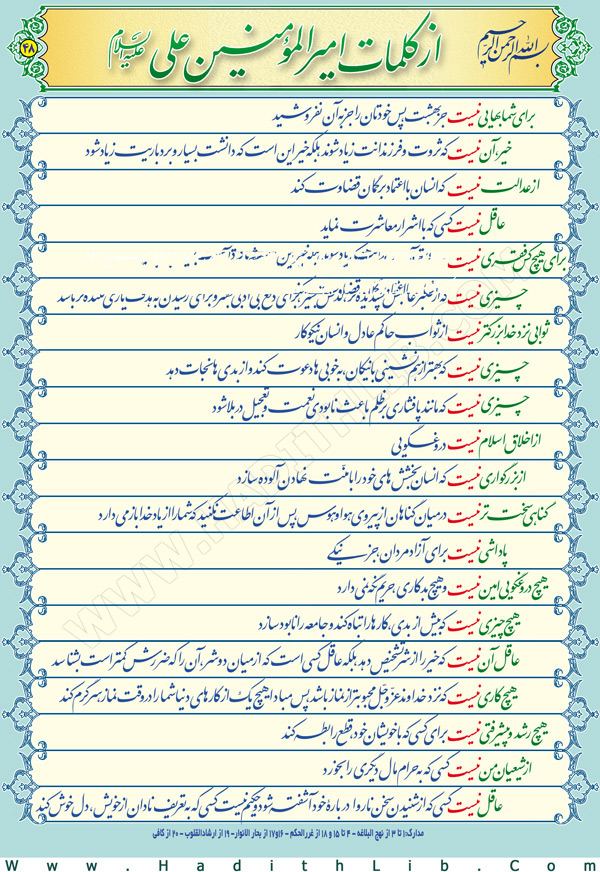 بسم الله الرحمن الرحیم
از کلمات امیرالمؤمنین علی علیه السلام
۴۸
برای شما بهایی نیست جز بهشت، پس خودتان را جز به آن نفروشید
خیر آن نیست که ثروت و فرزندانت زیاد شوند بلکه خیر این است که دانشت بسیار و بردباریت زیاد شود
از عدالت نیست که انسان با اعتماد بر گمان قضاوت کند
عاقل نیست کسی که با اشرار معاشرت نماید
برای هیچ کس فقری نیست
چیزی نیست برای رسیدن به هدف یاری دهنده تر باشد
ثوابی نزد خدا بزرگتر نیست از ثواب حاکم عادل و انسان نیکوکار
چیزی نیست که بهتر از هم نشینی با نیکان، به خوبی ها دعوت کند و از بدی ها نجات دهد
چیزی نیست که مانند پافشاری بر ظلم باعث نابودی نعمت و تعجیل در بلا شود
از اخلاق اسلام نیست دروغگویی
از بزرگواری نیست که انسان بخشش های خود را با منّت نهادن آلوده سازد
گناهی سخت تر نیست در میان گناهان از پیروی هوا و هوس پس از آن اطاعت نکنید که شما را از یاد خدا باز می دارد
پاداشی نیست برای آزاد مردان جز نیکی
هیچ دروغگویی امین نیست و هیچ بدکاری، حریم نگه نمی دارد
هیچ چیزی نیست که بیش از بدی، کارها را تباه کند و جامعه را نابود سازد
عاقل آن نیست که خیر را از شر تشخیص دهد بلکه عاقل کسی است که از میان دو شر، آن را که ضررش کمتر است بشناسد
هیچ کاری نیست که نزد خداوند عزوجل محبوبتر از نماز باشد پس مبادا هیچ یک از کارهای دنیا شما را در وقت نماز سرگرم کند
هیچ رشد و پیشرفتی نیست برای کسی که با خویشان خود، قطع رابطه کند
از شیعیان من نیست کسی که به حرام مال دیگری را بخورد
عاقل نیست کسی که از شنیدن سخن ناروا درباره خود آشفته شود و حکیم نیست کسی که به تعریف نادان از خویش، دل خوش کند
مدارک: ۱ تا ۳ از نهج البلاغه - ۴ تا ۱۵ و ۱۸ از غررالحکم - ۱۶و۱۷ از بحار الانوار- ۱۹ از ارشادالقلوب - ۲۰ از کافی
www.HadithLib.Com